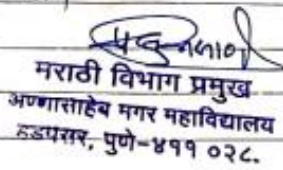 मराठी विभाग प्रमुख
अण्णासाहेब मगर महाविद्यालय
हडपसर, पुणे-४११ ०२८.